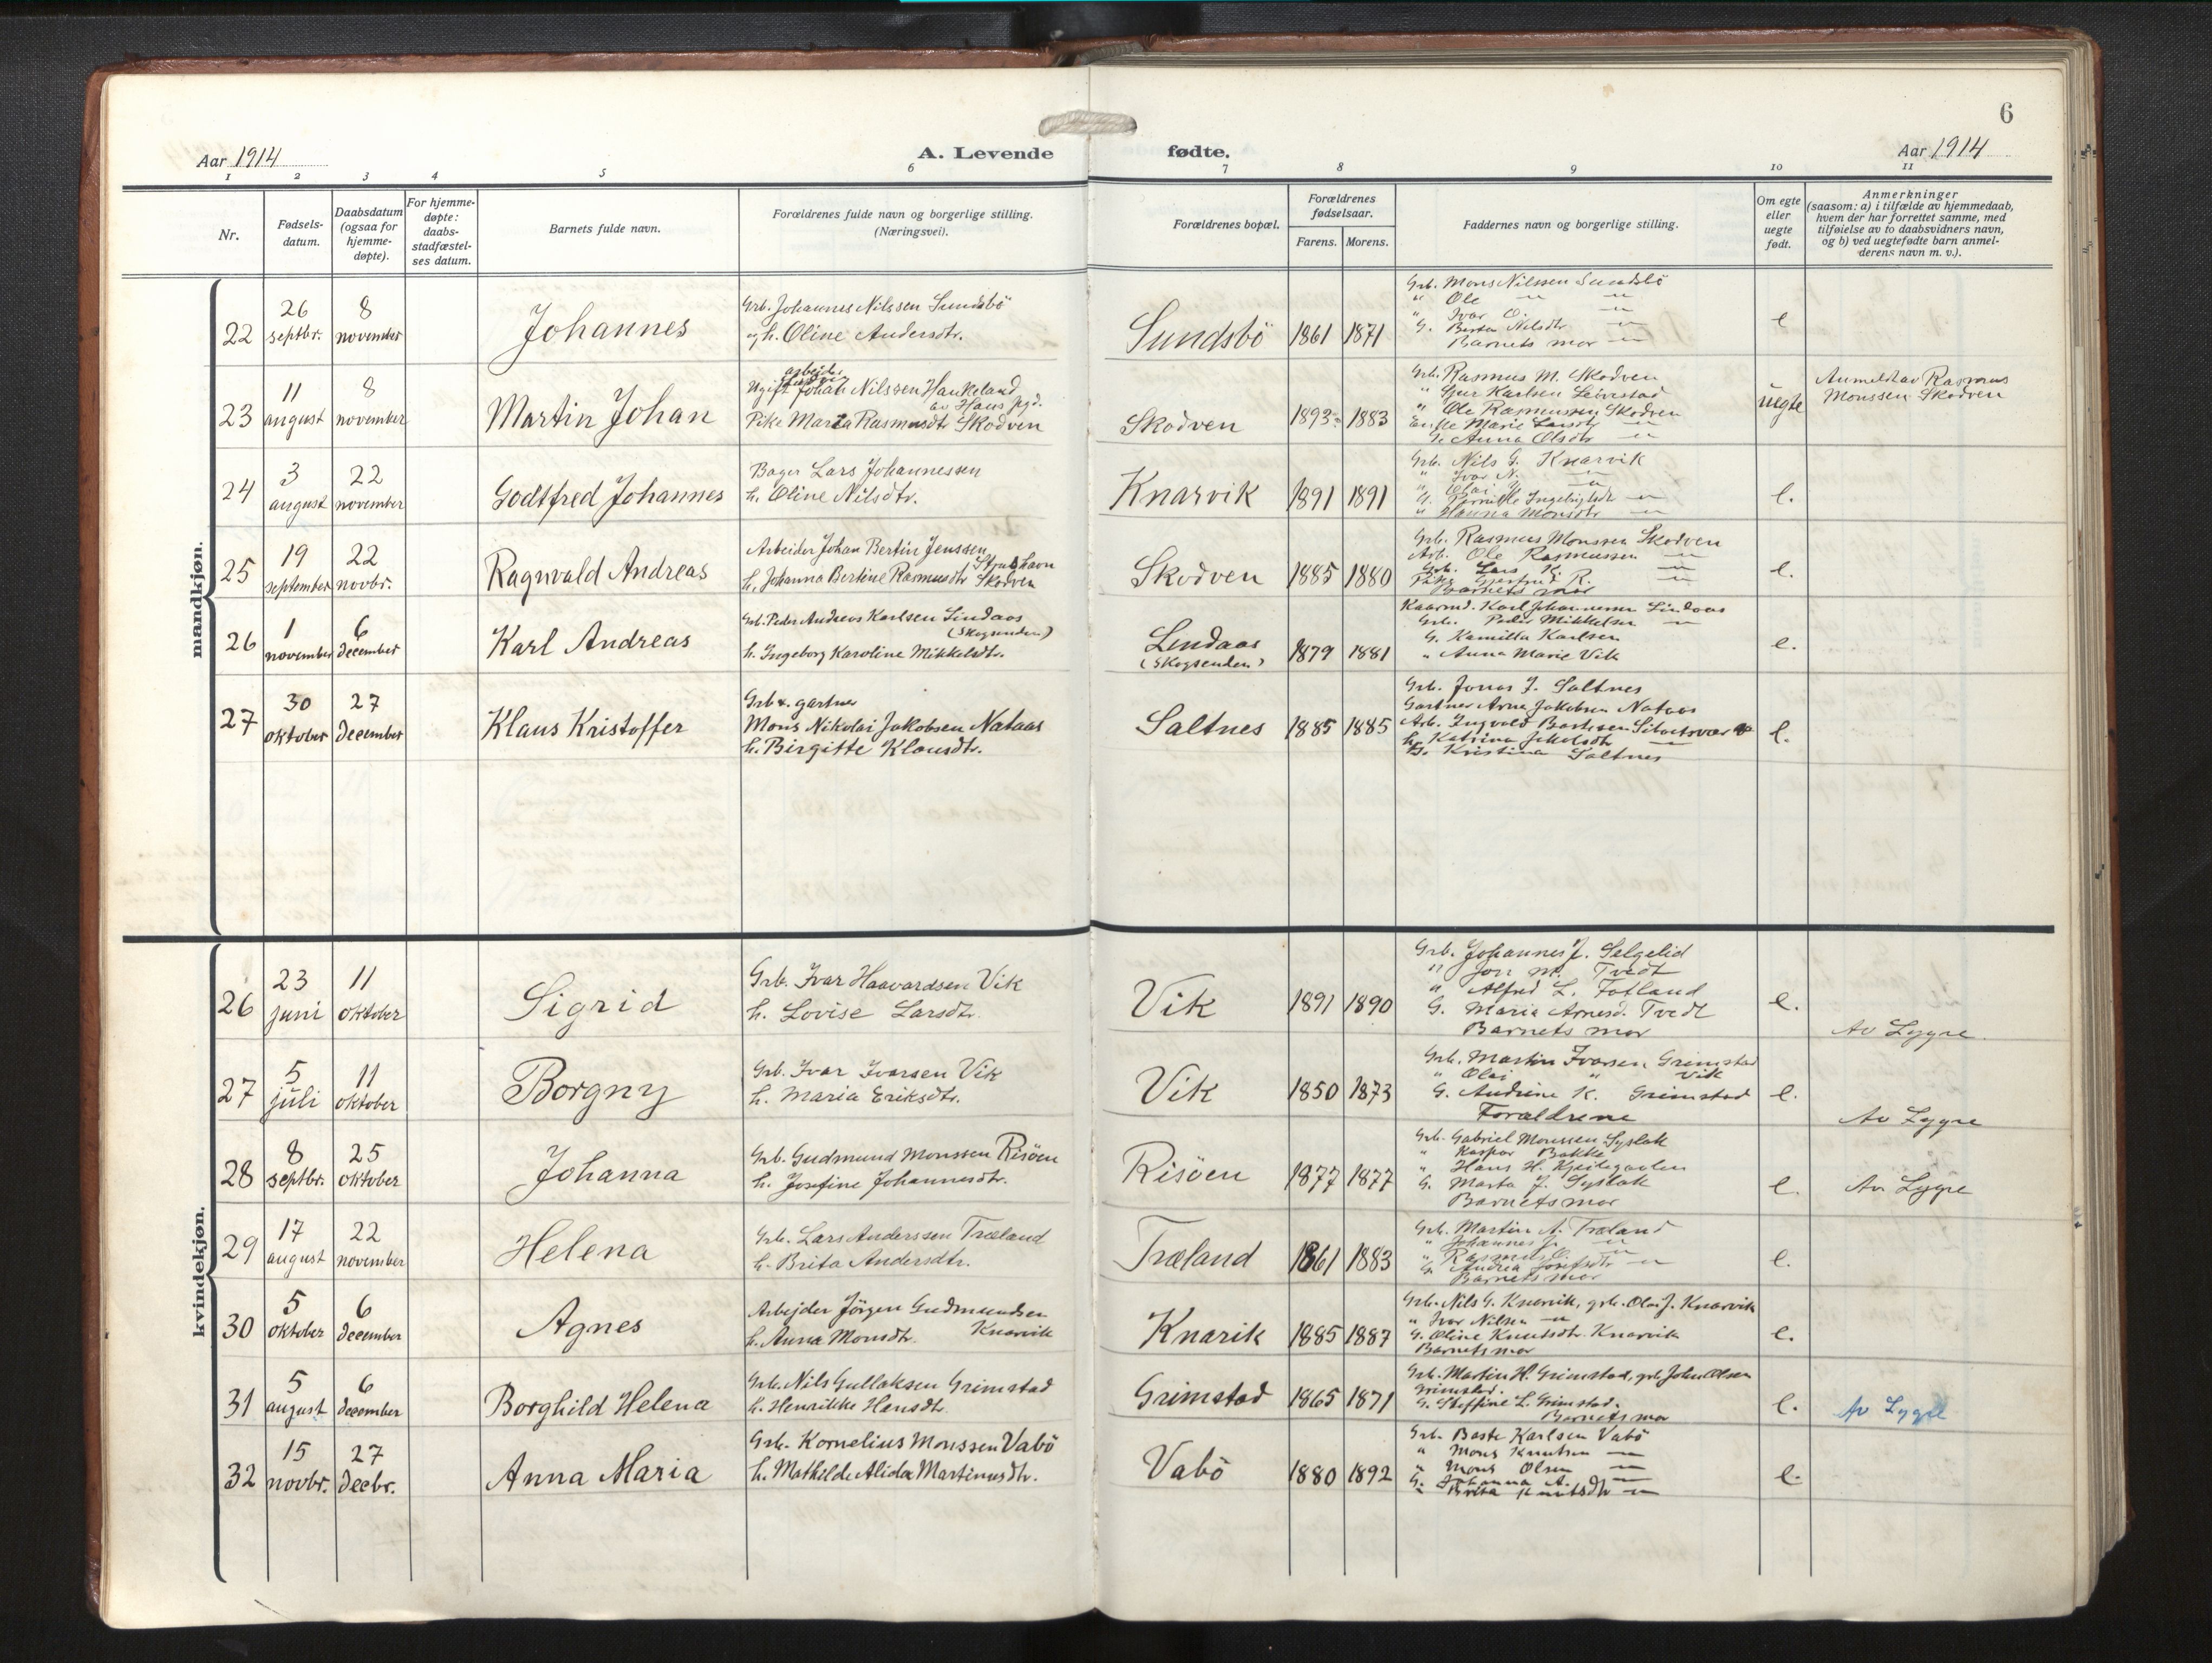 6
Aar 1914
A. Levende fødte.
Aar 1914
1 2 3 4 5 6 7 8 9 10 11
Nr.
Fødsels-
datum.
Daabsdatum
(ogsaa for
hjemme-
døpte).
For hjemme-
døpte:
daabs-
stadfæstel-
ses datum.
Barnets fulde navn.
Forældrenes fulde navn og borgerlige stilling.
(Næringsvei).
Forældrenes bopæl.
Forældrenes
fødselsaar.
Farens. Morens.
Faddernes navn og borgerlige stilling.
Om egte
eller
uegte
født.
Anmerkninger
(saasom: a) i tilfælde av hjemmedaab,
hvem der har forrettet samme, med
tilføielse av to daabsvidners navn,
og b) ved uegtefødte barn anmel-
derens navn m. v.).
mandkjøn.
22
26
septbr.
8
november
Johannes
Grb. Johannes Nilssen Sundsbö
og h. Oline Andersdtr.
Sundsbö
1861 1871
Grb. Mons Nilssen Sundsbö
" Ole — —
" Ivar O. —
G. Berta Nilsdtr —
Barnets mor —
e
23
11
august
8
november
Martin Johan
arbeider
Ugift Johan Nilssen Haukeland
av Haus pgd.
Pike Maria Rasmusdtr Skodven
Skodven
1893 1883
Grb. Rasmus M. Skodven
" Gjer Karlsen Leivestad
" Ole Rasmussen Skodven
Enke Marie Larsdtr —
G. Anna Olsdtr —
uegte
Anmeldt av Rasmus
Monssen Skodven
24
3
august
22
november
Godtfred Johannes
Bager Lars Johannessen
h. Oline Nilsdtr.
Knarvik
1891 1891
Grb. Nils G. Knarvik
" Ivar N. —
" Olai J. —
G. Pernille Ingebrigtsdtr —
" Hanna Monsdtr —
e.
25
19
september
22
novbr.
Ragnvald Andreas
Arbeider Johan Bertin Jenssen
h. Johanna Bertine Rasmusdtr Skodven
Skodven
1885 1880
Grb. Rasmus Monssen Skodven
Arb. Ole Rasmussen —
Grb. Lars K. —
Pike Gjertrud R. —
Barnets mor
e.
26
1
november
6
december
Karl Andreas
Grb. Peder Andreas Karlsen Lindaas
(Skogsenden)
h. Ingeborg Karoline Mikkelsdtr.
Lindaas
(Skogsenden)
1879 1881
Kaarmd. Karl Johannessen Lindaas
Grb. Peder Mikkelsen —
G. Kamilla Karlsen
" Anna Marie Vik
e.
27
30
oktober
27
december
Klaus Kristoffer
Grb & gartner
Mons Nikolai Jakobsen Nataas
h. Birgitte Klausdtr.
Saltnes
1885 1885
Grb. Jonas J. Saltnes
Gartner Arne Jakobsen Nataas
Arb. Ingvald Bastesen
h. Katrina Jakobsdtr —
G. Kristina Saltnes
e.
kvindekjøn.
26
23
juni
11
oktober
Sigrid
Grb. Ivar Haavardsen Vik
h. Lovise Larsdtr.
Vik
1891 1890
Grb. Johannes J. Salgelid
" Jon M. Tvedt
" Alfred L. Fotland
G. Maria Arnesd. Tvedt
Barnets mor
e.
Av Lygre
27
5
juli
11
oktober
Borgny
Grb. Ivar Ivarsen Vik
h. Maria Eriksdtr.
Vik
1850 1873
Grb. Martin Ivarsen Grimstad
" Olai " Vik
G. Andrine K. Grimstad
Forældrene
e.
Av Lygre
28
8
septbr.
25
oktober
Johanna
Grb. Gudmund Monssen Risöen
h. Josefine Johannesdtr.
Risöen
1877 1877
Grb. Gabriel Monssen Syslak
" Kaspar Bakke
" Hans H.
G. Marta J. Syslak
Barnets mor
e.
Av Lygre
29
17
august
22
november
Helena
Grb. Lars Anderssen Træland
h. Brita Andersdtr.
Træland
1861 1883
Grb. Martin A. Træland
" Johannes J. —
" Rasmus O. —
G. Andrea Josefsdtr —
Barnets mor
e.
30
5
oktober
6
december
Agnes
Arbejder Jörgen Gudmundsen
h. Anna Monsdtr. Knarvik
Knarik
1885 1887
Grb. Nils G. Knarvik, grb. Olai J. Knarvik
" Ivar Nilsen —
G. Oline Knutsdtr. Knarvik
Barnets mor
e.
31
5
august
6
december
Borghild Helena
Grb. Nils Gullaksen Grimstad
h. Henrikke Hansdtr.
Grimstad
1865 1871
Grb. Martin H. Grimstad, grb. Johan Olsen
Grimstad.
G. Steffine L. Grimstad.
Barnets mor
e.
Av Lygre
32
15
novbr.
27
decbr.
Anna Maria
Grb. Kornelius Monssen Vabö
h. Mathilde Alida Martinusdtr.
Vabö
1880 1892
Grb. Baste Karlsen Vabö
" Mons Knutsen —
" Mons Olsen —
G. Johanna A. —
" Brita Knutsdtr —
e.